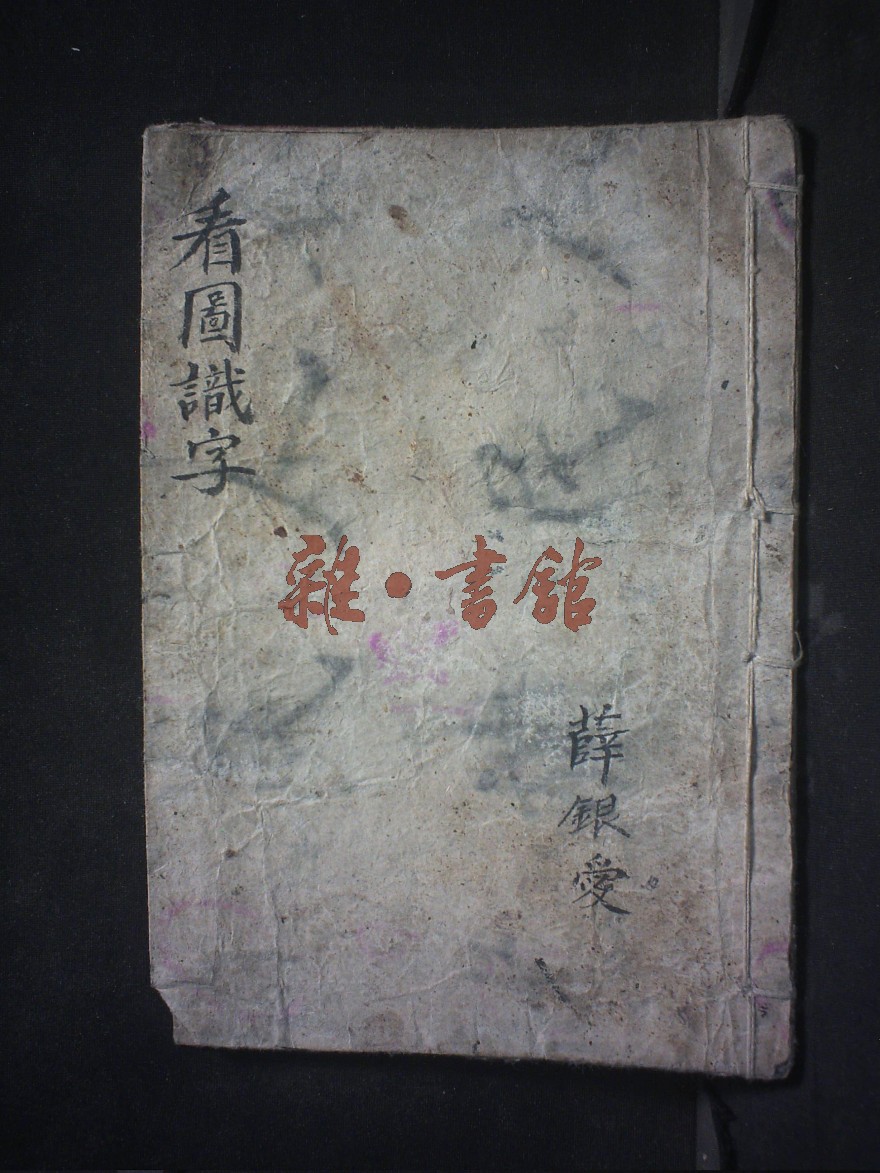 看圖識字
雜·書館
薛銀愛